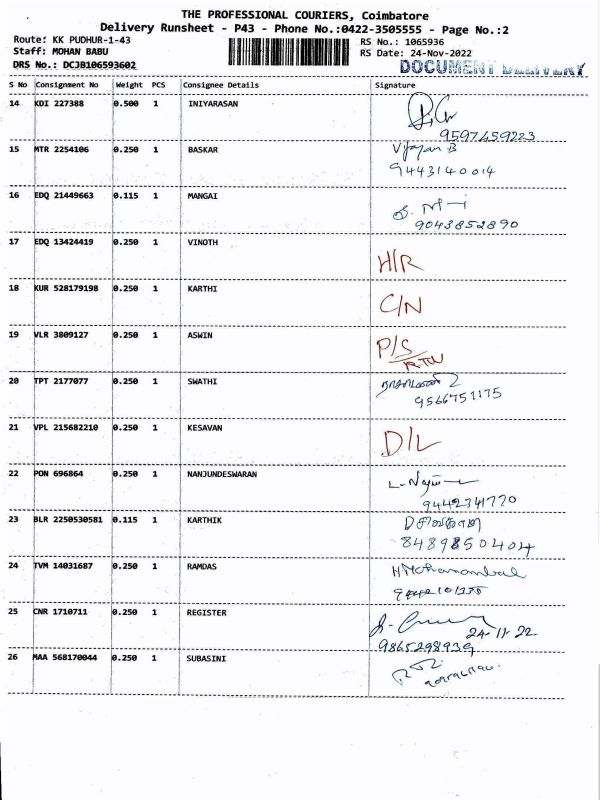 THE PROFESSIONAL COURIERS, Coimbatore
Delivery Runsheet - P43 - Phone No.:0422-3505555 - Page No.:2
Route: KK PUDHUR-1-43 RS No.: 1065936
Staff: MOHAN BABU RS Date: 24-Nov-2022
DRS No.: DCJB106593602 DOCUMENT DELIVERY
S No Consignment No Weight PCS Consignee Details Signature
14 KDI 227388 0.500 1 INIYARASAN
9597459223
15 MTR 2254106 0.250 1 BASKAR Vijayan B
9443140014
16 EDQ 21449663 0.115 1 MANGAI
9043852890
17 EDQ 13424419 0.250 1 VINOTH H/R
18 KUR 528179198 0.250 1 KARTHI C/N
19 VLR 3809127 0.250 1 ASWIN P/S
RTN
20 TPT 2177077 0.250 1 SWATHI
9566751175
21 VPL 215682210 0.250 1 KESAVAN D/L
22 PON 696864 0.250 1 NANJUNDESWARAN
9442341770
23 BLR 2250530581 0.115 1 KARTHIK
8489850404
24 TVM 14031687 0.250 1 RAMDAS
25 CNR 1710711 0.250 1 REGISTER
24-11-22
9865298939
26 MAA 568170044 0.250 1 SUBASINI